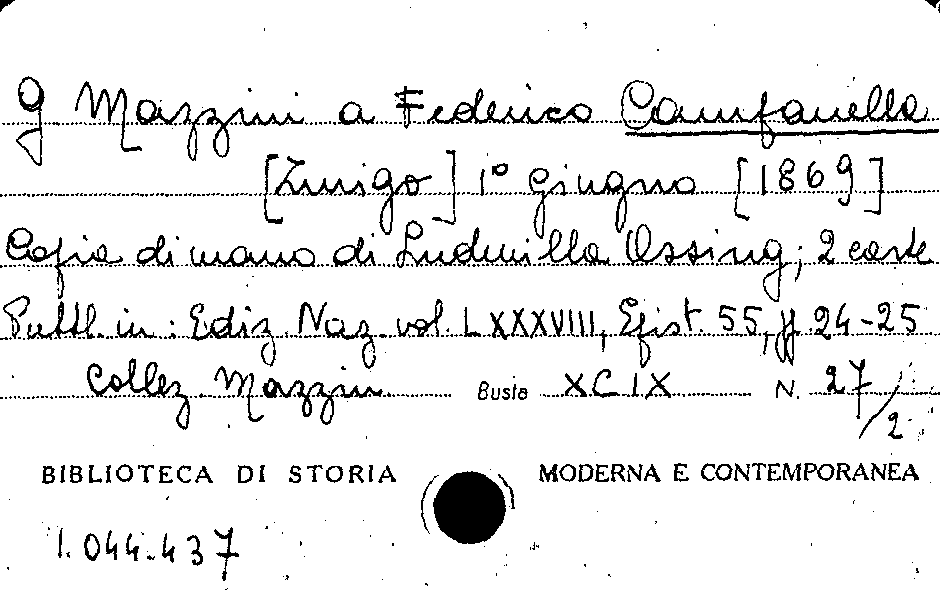 G Mazzini a Federico Campanella
[Zurigo] 1º giugno [1869]
Copia di mano di Ludmilla Assing; 2 carte
Pubbl. in: Ediz. Naz. vol. LXXXVIII, Epist. 55, pp 24-25
Collez. Mazzini Busta XCIX N. 27/2
BIBLIOTECA DI STORIA MODERNA E CONTEMPORANEA
1.044.437